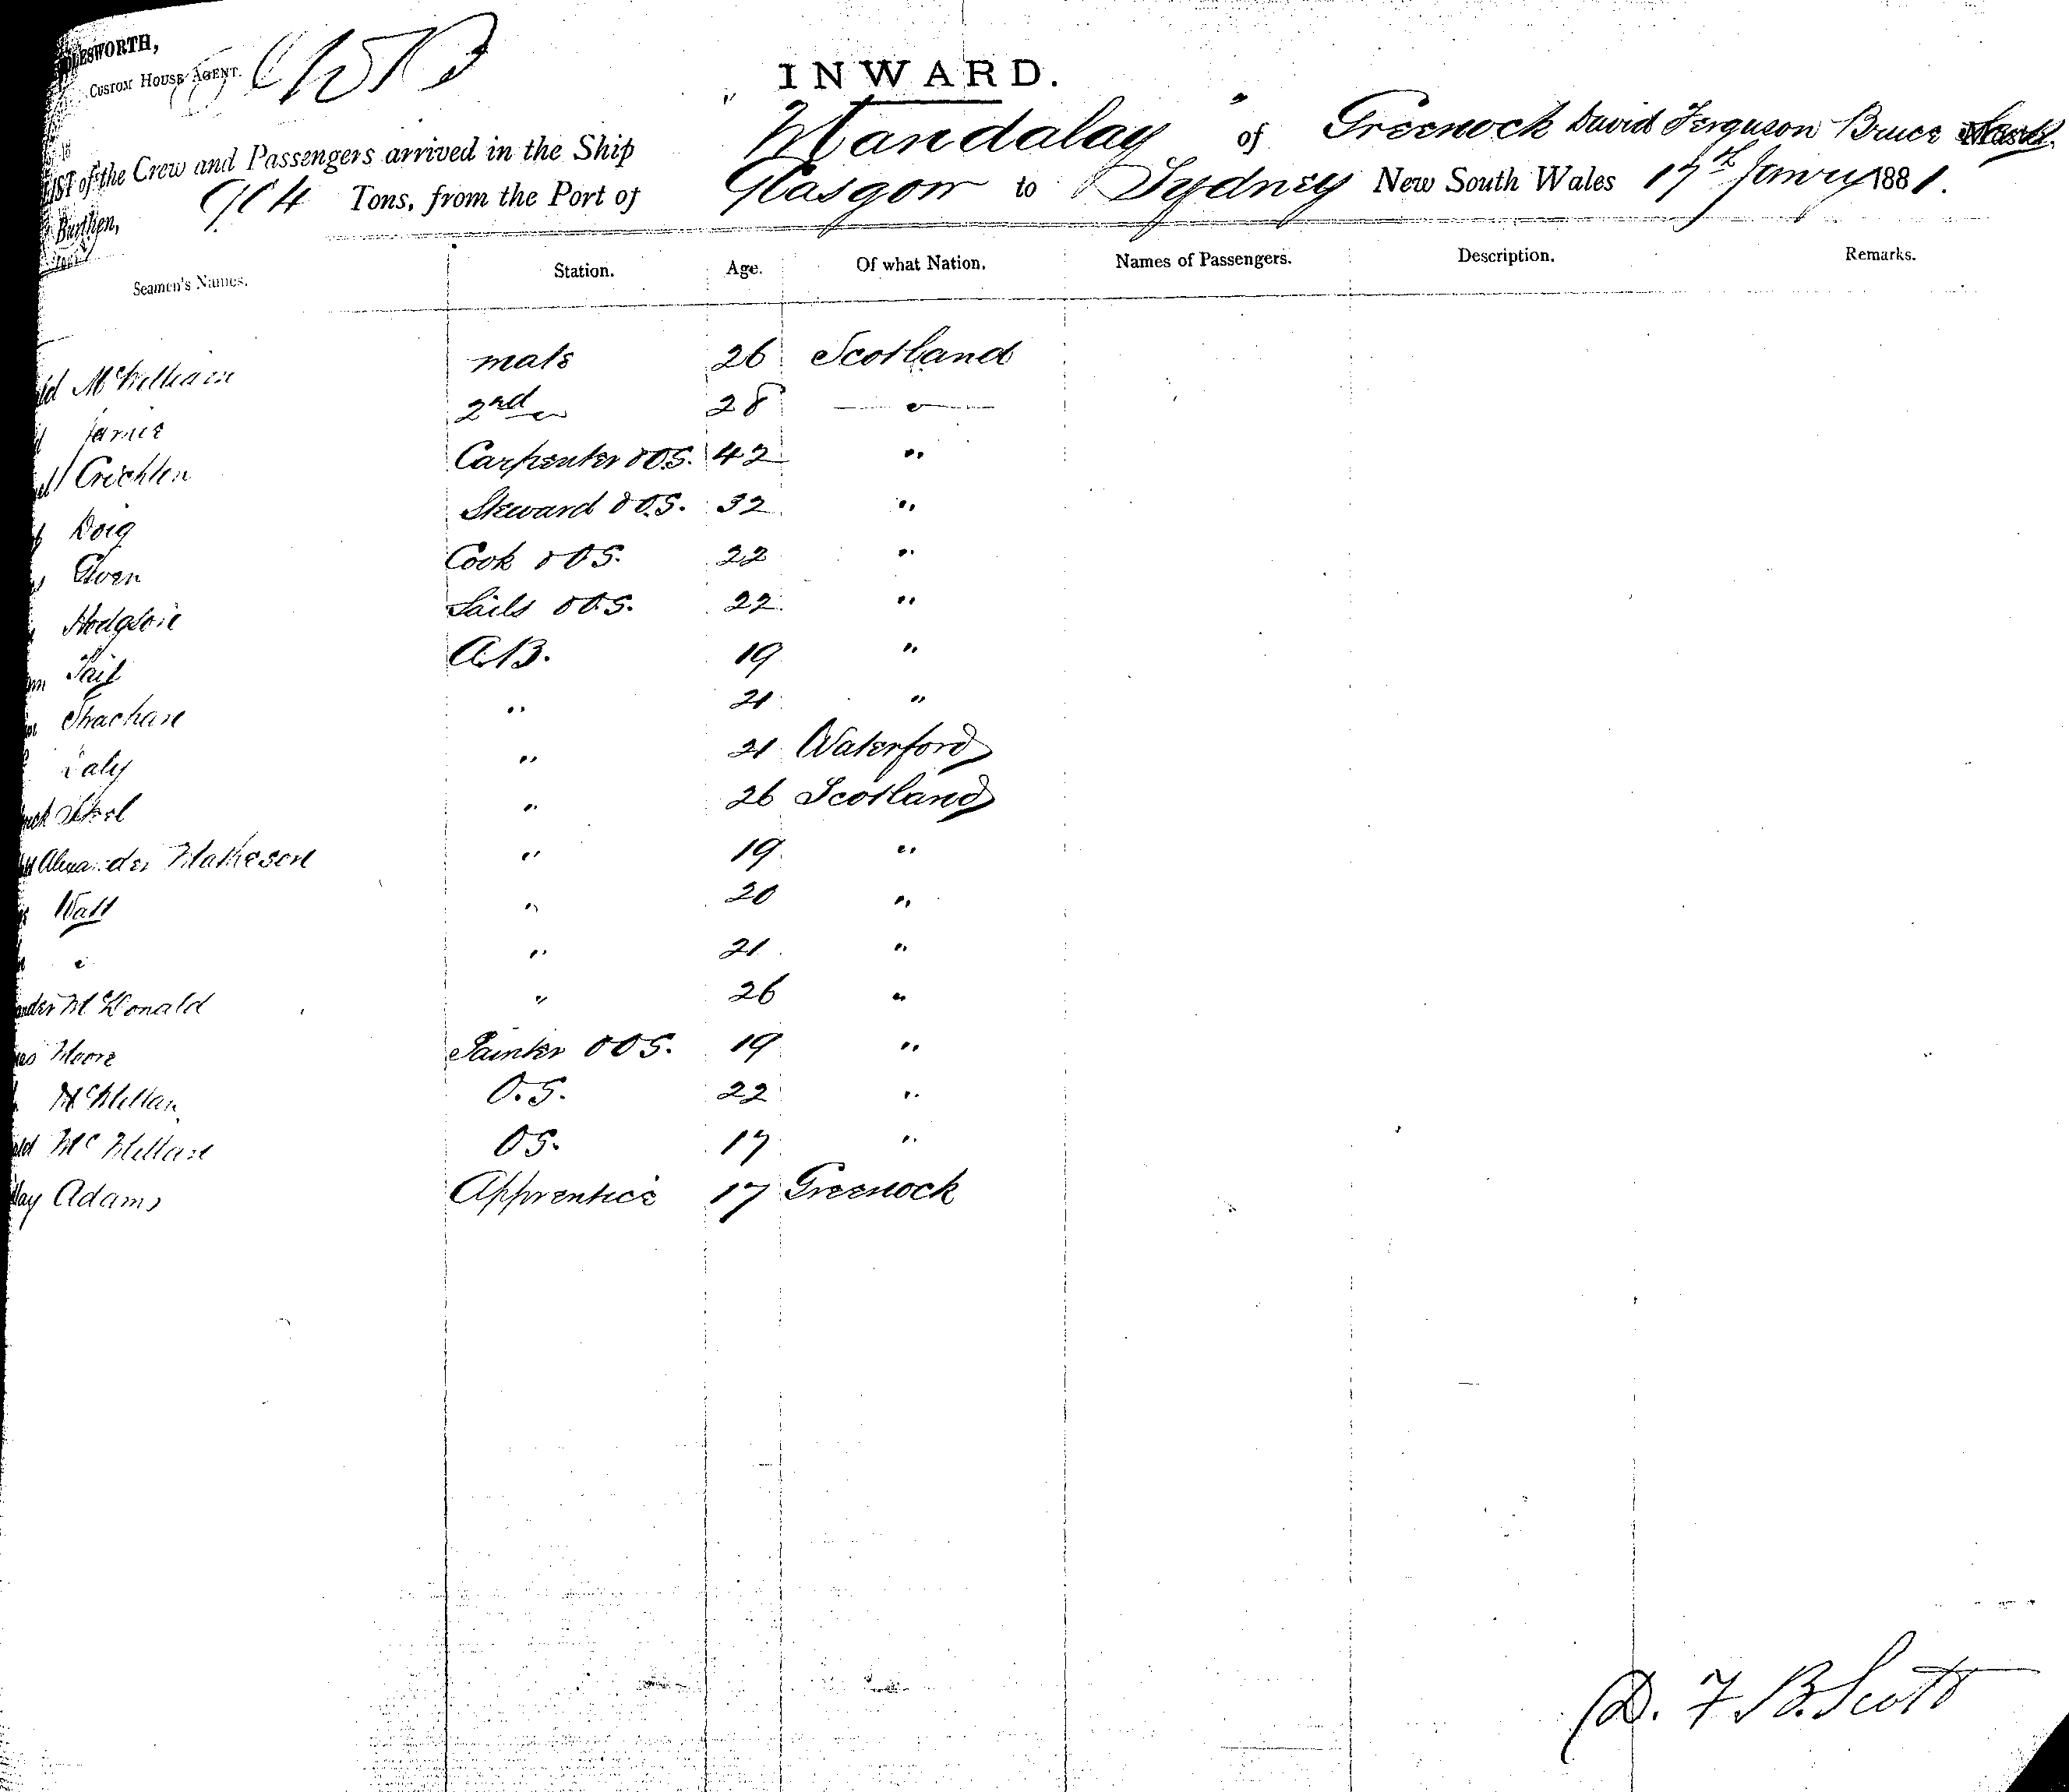 LESWORTH,
CUSTOM HOUSE AGENT.
INWARD.
LIST of the Crew and Passengers arrived in the Ship " Mandalay " of Greenock David Ferguson Bruce Scott Master,
Burthen, 904 Tons, from the Port of Glasgow to Sydney New South Wales 17th Janry 1881.
Seamen's Names. Station. Age. Of what Nation. Names of Passengers. Description. Remarks.
McWilliam mate 26 Scotland
Jamie 2nd " 28 — " —
Crichton Carpenter & O.S. 42 "
Doig Steward & O.S. 32 "
Cook & O.S. 22 "
Hodgson Sails & O.S. 22 "
Tait A.B. 19 "
Strachan " 21 "
Daly " 21 Waterford
" 26 Scotland
Alexander Matheson " 19 "
Watt " 20 "
" " 21 "
McDonald " 26 "
Moore Painter & O.S. 19 "
McMillan O.S. 22 "
McMillan O.S. 17 "
Adams Apprentice 17 Greenock
D. F. B. Scott